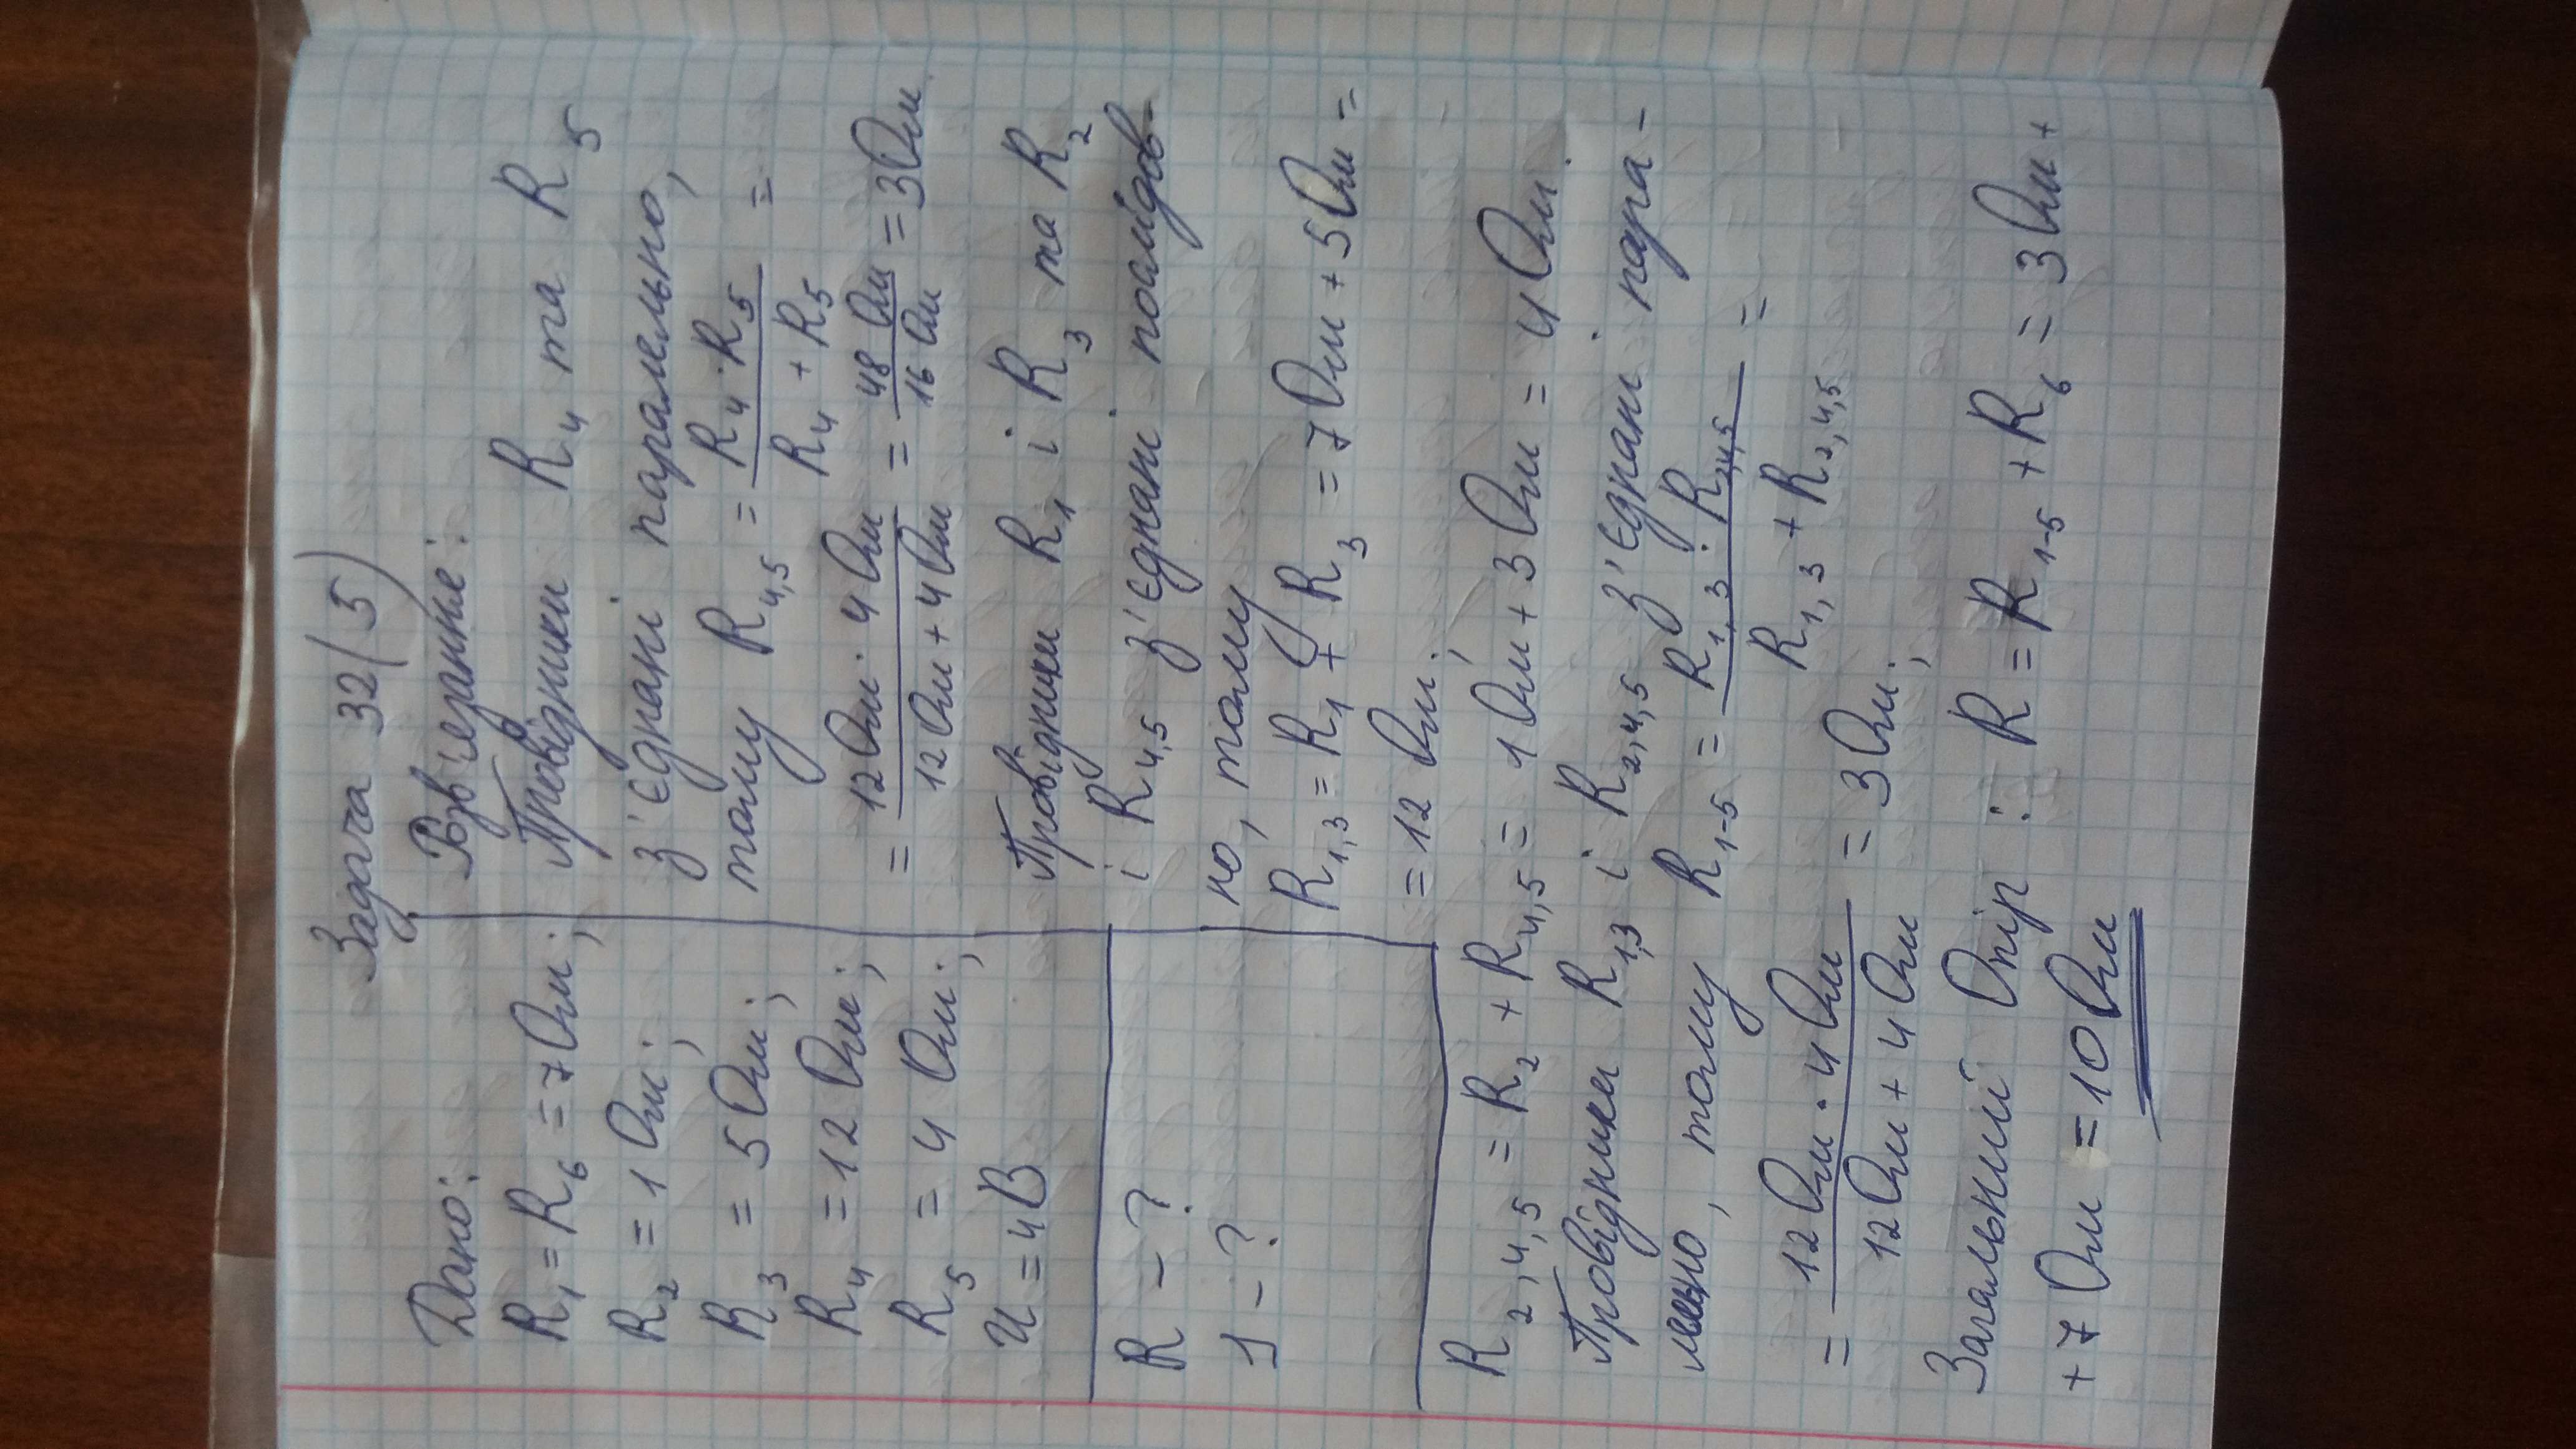 Задача 32(5)
Дано:
R₁ = R₆ = 7 Ом;
R₂ = 1 Ом;
R₃ = 5 Ом;
R₄ = 12 Ом;
R₅ = 4 Ом;
U = 4В
R - ?
I - ?
Розв'язання:
Провідники R₄ та R₅
з'єднані паралельно,
тому R₄,₅ = (R₄ · R₅)/(R₄ + R₅) =
= (12 Ом · 4 Ом)/(12 Ом + 4 Ом) = (48 Ом)/(16 Ом) = 3 Ом
Провідники R₁ і R₃ та R₂
і R₄,₅ з'єднані послідов-
но, тому
R₁,₃ = R₁ + R₃ = 7 Ом + 5 Ом =
= 12 Ом;
R₂,₄,₅ = R₂ + R₄,₅ = 1 Ом + 3 Ом = 4 Ом.
Провідники R₁,₃ і R₂,₄,₅ з'єднані пара-
лельно, тому R₁₋₅ = (R₁,₃ · R₂,₄,₅)/(R₁,₃ + R₂,₄,₅) =
= (12 Ом · 4 Ом)/(12 Ом + 4 Ом) = 3 Ом;
Загальний Опір : R = R₁₋₅ + R₆ = 3 Ом +
+ 7 Ом = 10 Ом